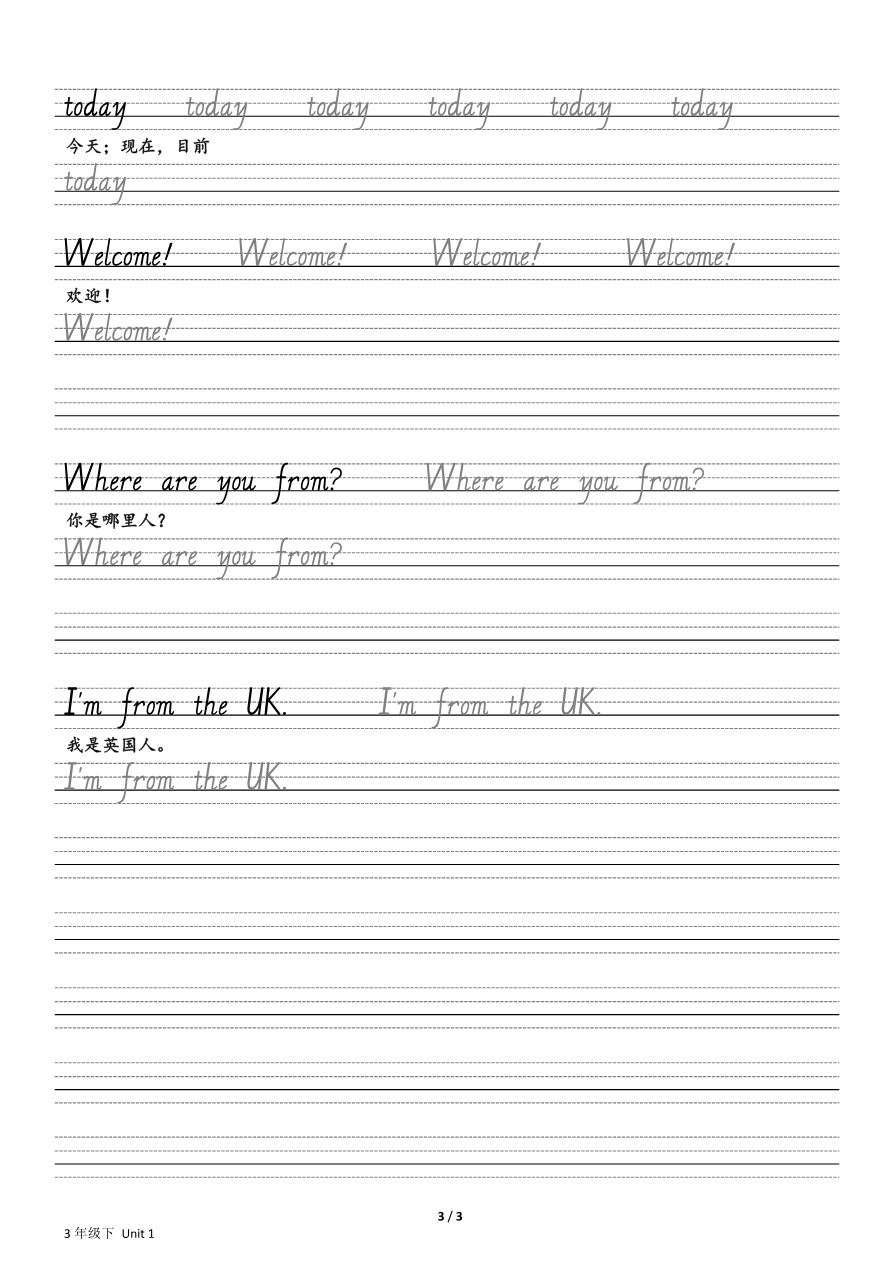 today today today today today today
今天；现在，目前
today
Welcome! Welcome! Welcome! Welcome!
欢迎！
Welcome!
Where are you from? Where are you from?
你是哪里人？
Where are you from?
I'm from the UK. I'm from the UK.
我是英国人。
I'm from the UK.
3 / 3
3 年级下 Unit 1